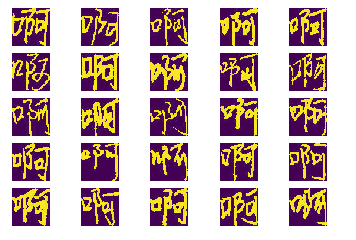 啊 啊 啊 啊 啊
啊 啊 啊 啊 啊
啊 啊 啊 啊 啊
啊 啊 啊 啊 啊
啊 啊 啊 啊 啊